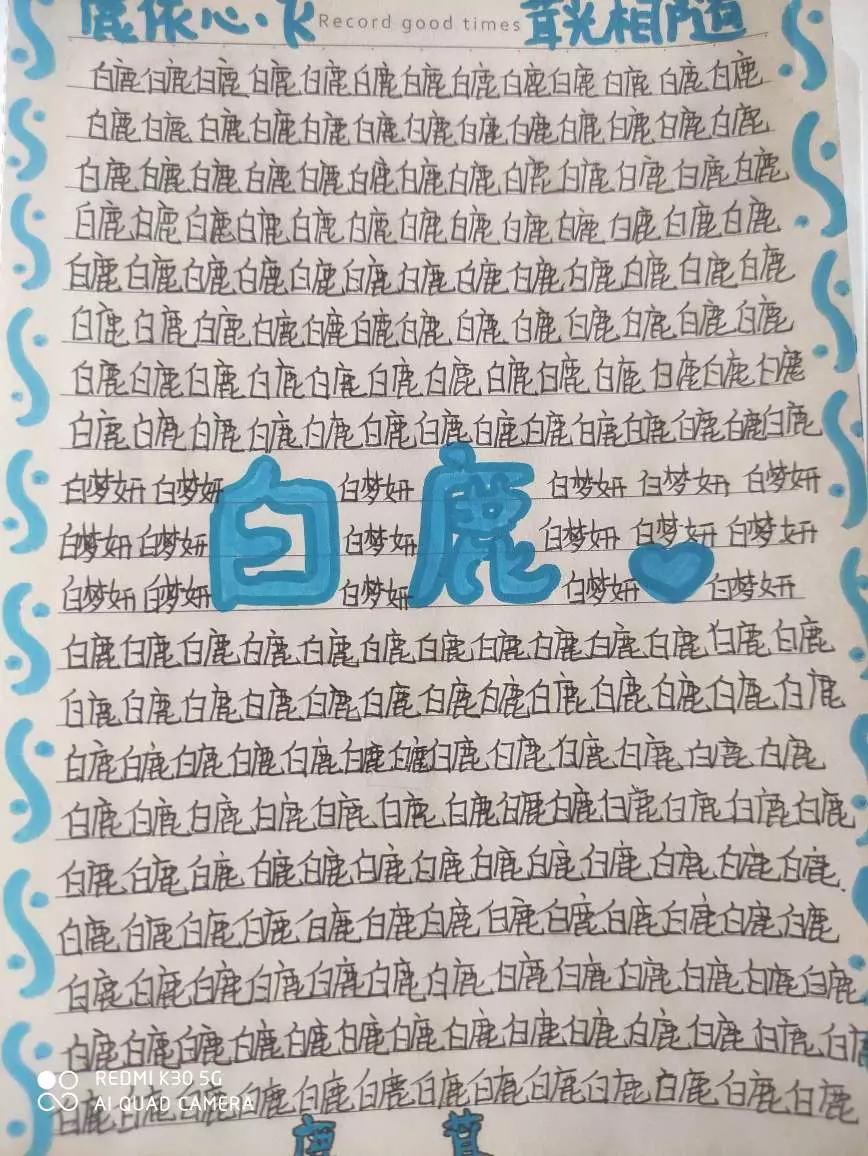 鹿依心·飞 Record good times 茸光相随
白鹿白鹿白鹿白鹿白鹿白鹿白鹿白鹿白鹿白鹿白鹿白鹿白鹿
白鹿白鹿白鹿白鹿白鹿白鹿白鹿白鹿白鹿白鹿白鹿白鹿白鹿
白鹿白鹿白鹿白鹿白鹿白鹿白鹿白鹿白鹿白鹿白鹿白鹿白鹿
白鹿白鹿白鹿白鹿白鹿白鹿白鹿白鹿白鹿白鹿白鹿白鹿白鹿
白鹿白鹿白鹿白鹿白鹿白鹿白鹿白鹿白鹿白鹿白鹿白鹿白鹿
白鹿白鹿白鹿白鹿白鹿白鹿白鹿白鹿白鹿白鹿白鹿白鹿白鹿
白鹿白鹿白鹿白鹿白鹿白鹿白鹿白鹿白鹿白鹿白鹿白鹿白鹿
白鹿白鹿白鹿白鹿白鹿白鹿白鹿白鹿白鹿白鹿白鹿白鹿白鹿白鹿
白梦妍 白梦妍 白梦妍 白梦妍 白梦妍 白梦妍
白鹿
白梦妍 白梦妍 白梦妍 白梦妍 白梦妍 白梦妍
白梦妍 白梦妍 白梦妍 白梦妍 白梦妍
白鹿白鹿白鹿白鹿白鹿白鹿白鹿白鹿白鹿白鹿白鹿白鹿白鹿
白鹿白鹿白鹿白鹿白鹿白鹿白鹿白鹿白鹿白鹿白鹿白鹿白鹿
白鹿白鹿白鹿白鹿白鹿白鹿白鹿白鹿白鹿白鹿白鹿白鹿白鹿
白鹿白鹿白鹿白鹿白鹿白鹿白鹿白鹿白鹿白鹿白鹿白鹿白鹿
白鹿白鹿白鹿白鹿白鹿白鹿白鹿白鹿白鹿白鹿白鹿白鹿白鹿
白鹿白鹿白鹿白鹿白鹿白鹿白鹿白鹿白鹿白鹿白鹿白鹿白鹿
白鹿白鹿白鹿白鹿白鹿白鹿白鹿白鹿白鹿白鹿白鹿白鹿白鹿
白鹿白鹿白鹿白鹿白鹿白鹿白鹿白鹿白鹿白鹿白鹿白鹿白鹿白鹿
白鹿白鹿白鹿白鹿白鹿白鹿白鹿白鹿白鹿白鹿白鹿白鹿白鹿
REDMI K30 5G
AI QUAD CAMERA
鹿 茸